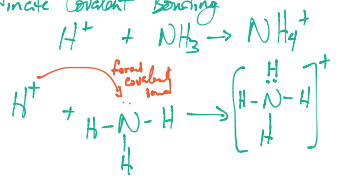 Covalent Bonding
H⁺ + NH₃ → NH₄⁺
form
covalent
bond
H⁺ + H-N̈-H → [H-N-H]⁺
H H
H